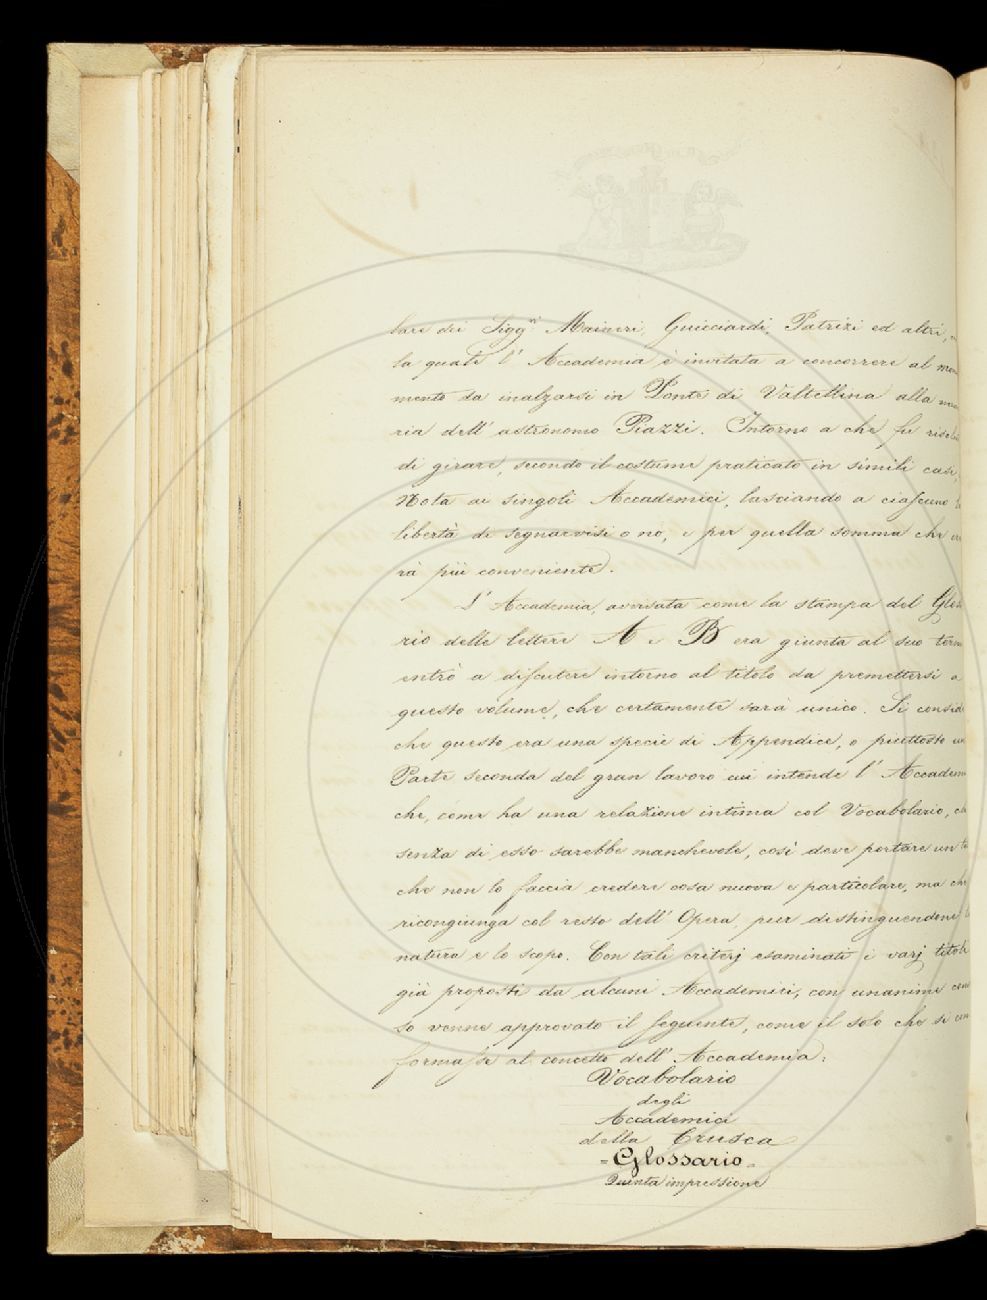 lare dei Sigg.ri Maineri, Guicciardi, Patrizi ed altri,
la quale l' Accademia è invitata a concorrere al monu
mento da inalzarsi in Ponte di Valtellina alla
ria dell' astronomo Piazzi. Intorno a che fu
di girare, secondo il costume praticato in simili casi,
Nota ai singoli Accademici, lasciando a ciascuno
libertà di segnarvisi o no, e per quella somma che
rà più conveniente.
L' Accademia, avvisata come la stampa del
rio delle lettere A e B era giunta al suo
entrò a discutere intorno al titolo da premettersi a
questo volume, che certamente sarà unico. Si
che questo era una specie di Appendice, o piuttosto
Parte seconda del gran lavoro cui intende l'
che, come ha una relazione intima col Vocabolario,
senza di esso sarebbe manchevole, così deve portare un
che non lo faccia credere cosa nuova e particolare, ma
ricongiunga col resto dell' Opera, pur distinguendone
natura e lo scopo. Con tali criterj esaminati i varj titoli
già proposti da alcuni Accademici, con unanime
so venne approvato il seguente, come il solo che si
formasse al concetto dell' Accademia:
Vocabolario
degli
Accademici
della Crusca
= Glossario =
Quinta impressione